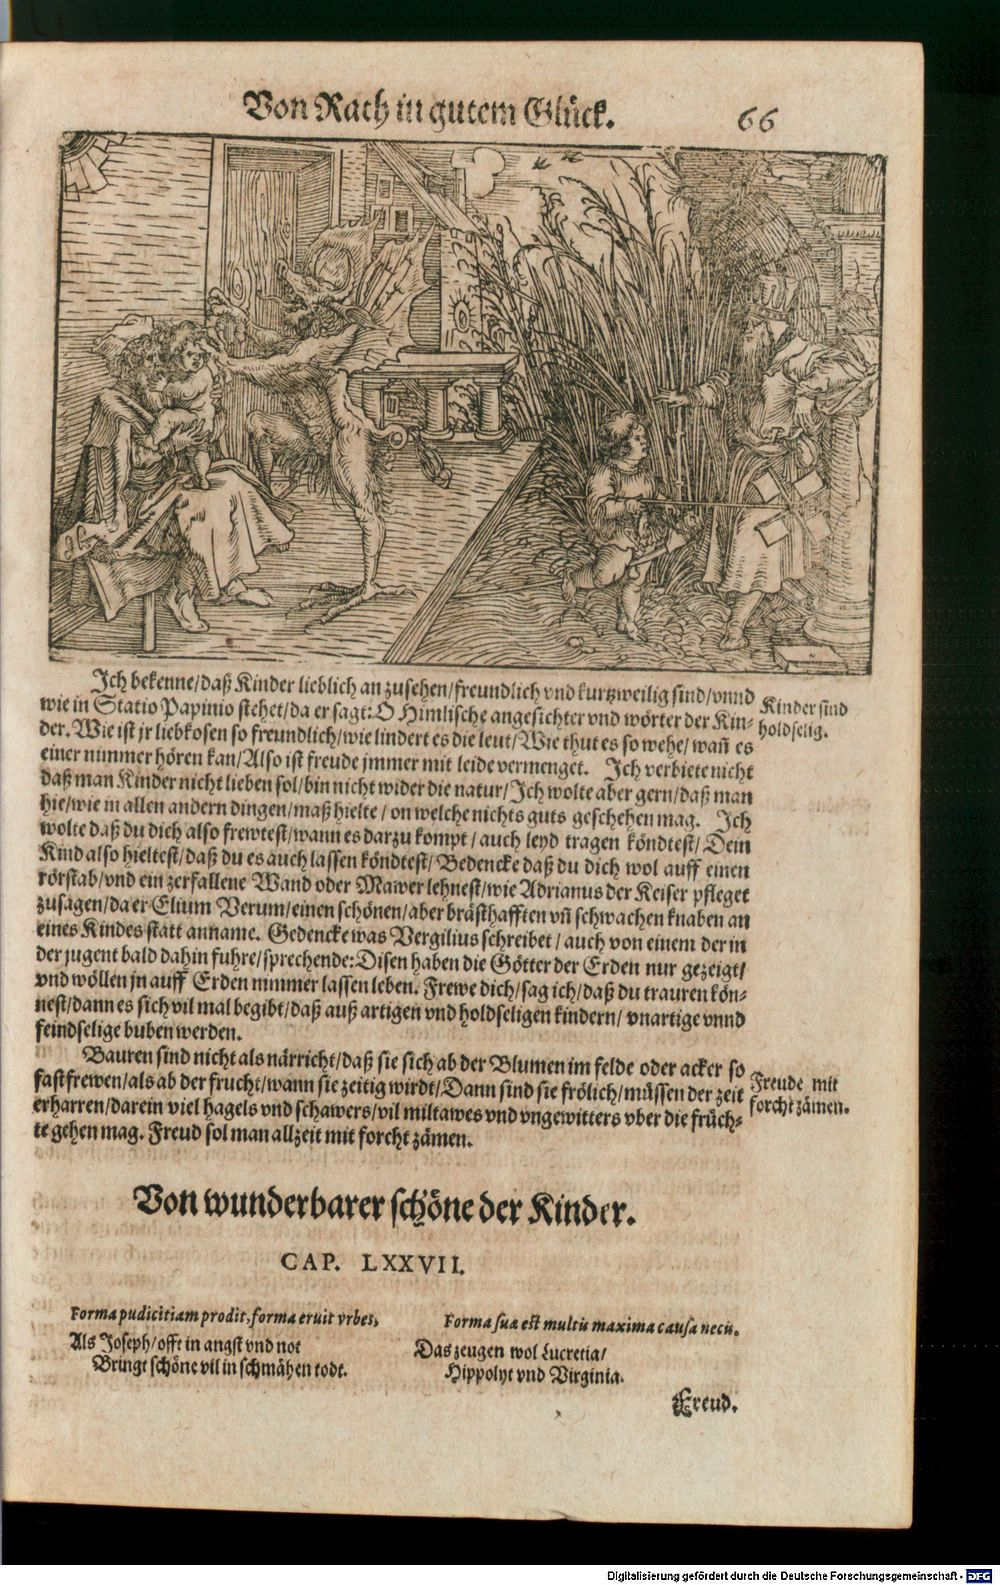 Von Rath in gutem Glück.
66
Ich bekenne/daß Kinder lieblich an zusehen/freundlich vnd kurtzweilig sind/vnnd
wie in Statio Papinio stehet/da er sagt: O Himlische angesichter vnd wörter der Kin⸗
der. Wie ist jr liebkosen so freundlich/wie lindert es die leut/Wie thut es so wehe/wañ es
einer nimmer hören kan/Also ist freude jmmer mit leide vermenget. Ich verbiete nicht
daß man Kinder nicht lieben sol/bin nicht wider die natur/Ich wolte aber gern/daß man
hie/wie in allen andern dingen/maß hielte/on welche nichts guts geschehen mag. Ich
wolte daß du dich also frewtest/wann es darzu kompt/auch leyd tragen köndtest/Dein
Kind also hieltest/daß du es auch lassen köndtest/Bedencke daß du dich wol auff einen
rörstab/vnd ein zerfallene Wand oder Mawer lehnest/wie Adrianus der Keiser pfleget
zusagen/da er Elium Verum/einen schönen/aber brästhafften vñ schwachen knaben an
eines Kindes statt anname. Gedencke was Vergilius schreibet/auch von einem der in
der jugent bald dahin fuhre/sprechende: Disen haben die Götter der Erden nur gezeigt/
vnd wöllen jn auff Erden nimmer lassen leben. Frewe dich/sag ich/daß du trauren kön⸗
nest/dann es sich vil mal begibt/daß auß artigen vnd holdseligen kindern/vnartige vnnd
feindselige buben werden.
Kinder sind
holdselig.
Bauren sind nicht als närricht/daß sie sich ab der Blumen im felde oder acker so
fast frewen/als ab der frucht/wann sie zeitig wirdt/Dann sind sie frölich/müssen der zeit
erharren/darein viel hagels vnd schawers/vil miltawes vnd vngewitters vber die früch⸗
te gehen mag. Freud sol man allzeit mit forcht zämen.
Freude mit
forcht zämen.
Von wunderbarer schöne der Kinder.
CAP. LXXVII.
Forma pudicitiam prodit, forma eruit vrbes,
Als Joseph/offt in angst vnd not
Bringt schöne vil in schmähen todt.
Forma sua est multis maxima causa necis.
Das zeugen wol Lucretia/
Hippolyt vnd Virginia.
Freud.
Digitalisierung gefördert durch die Deutsche Forschungsgemeinschaft - DFG